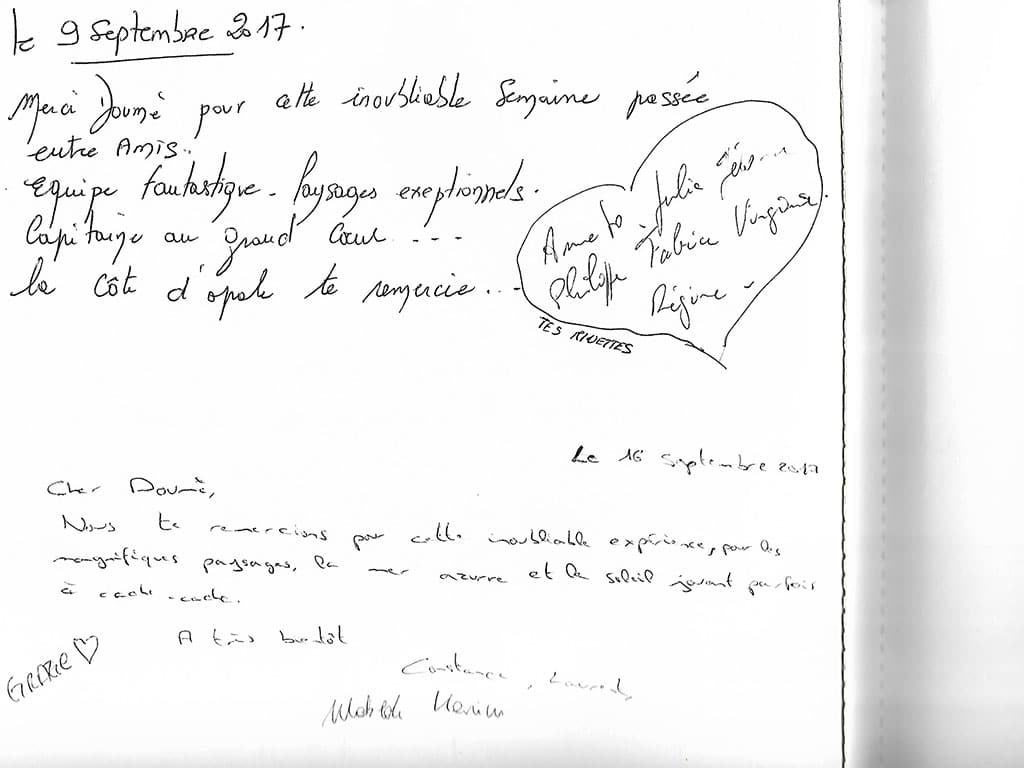 le 9 septembre 2017.
Merci Doumé pour cette inoubliable semaine passée
entre Amis..
Equipe fantastique - Paysages exeptionnels.
Capitaine au grand Cœur ...-
la Côte d'opale te remercie...
Julie
Philippe Fabrice Virginie
Régine -
TES
Le 16 septembre 2017
Cher Doumè,
Nous te remercions pour cette inoubliable expérience, pour les
magnifiques paysages, la mer azurre et le soleil jouant parfois
à cache-cache.
A très bientôt
Constance, Laurent,